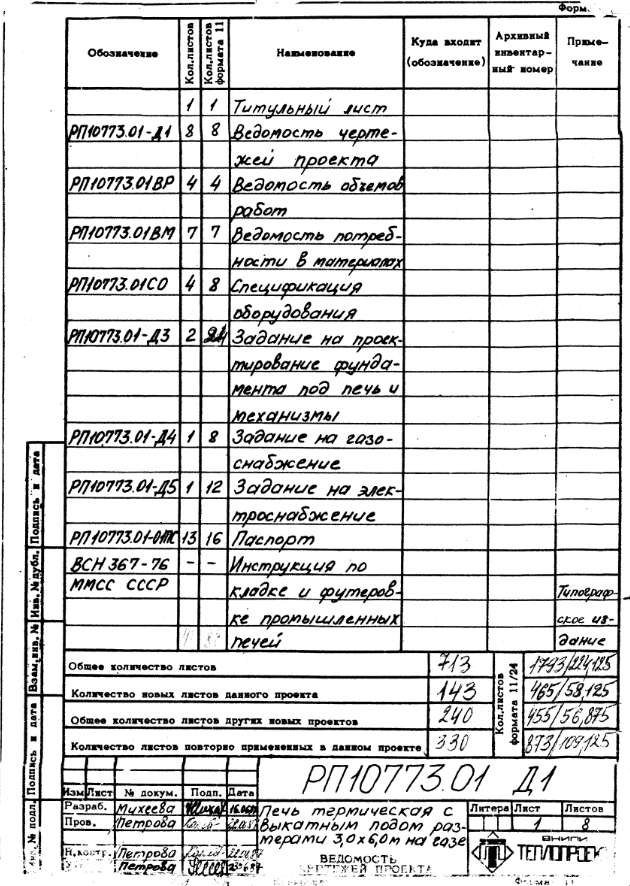 Форм.
Обозначение Кол.листов Кол.листов формата 11 Наименование Куда входит (обозначение) Архивный инвентар- ный номер Приме- чание
1 1 Титульный лист
РП10773.01-Д1 8 8 Ведомость черте-
жей проекта
РП10773.01ВР 4 4 Ведомость объемов
работ
РП10773.01ВМ 7 7 Ведомость потреб-
ности в материалах
РП10773.01СО 4 8 Спецификация
оборудования
РП10773.01-Д3 2 24 Задание на проек-
тирование фунда-
мента под печь и
механизмы
РП10773.01-Д4 1 8 Задание на газо-
снабжение
РП10773.01-Д5 1 12 Задание на элек-
троснабжение
РП10773.01-01ПС 13 16 Паспорт
ВСН 367-76 - - Инструкция по
ММСС СССР кладке и футеров- Типограф-
ке промышленных ское из-
печей дание
Общее количество листов 713 Кол.листов формата 11/24 1793/224,125
Количество новых листов данного проекта 143 465/58,125
Общее количество листов других новых проектов 240 455/56,875
Количество листов повторно примененных в данном проекте 330 873/109,125
РП10773.01 Д1
Изм Лист № докум. Подп. Дата
Разраб. Михеева
Пров. Петрова
Н.контр. Петрова
Петрова
Печь термическая с
выкатным подом раз-
мерами 3,0х6,0м на газе
ВЕДОМОСТЬ
ЧЕРТЕЖЕЙ ПРОЕКТА
Литера Лист Листов
1 8
ВНИПИ
ТЕПЛОПРОЕКТ
№ подл. Подпись и дата Взам.инв. № Инв. № дубл. Подпись и дата
Формат 11